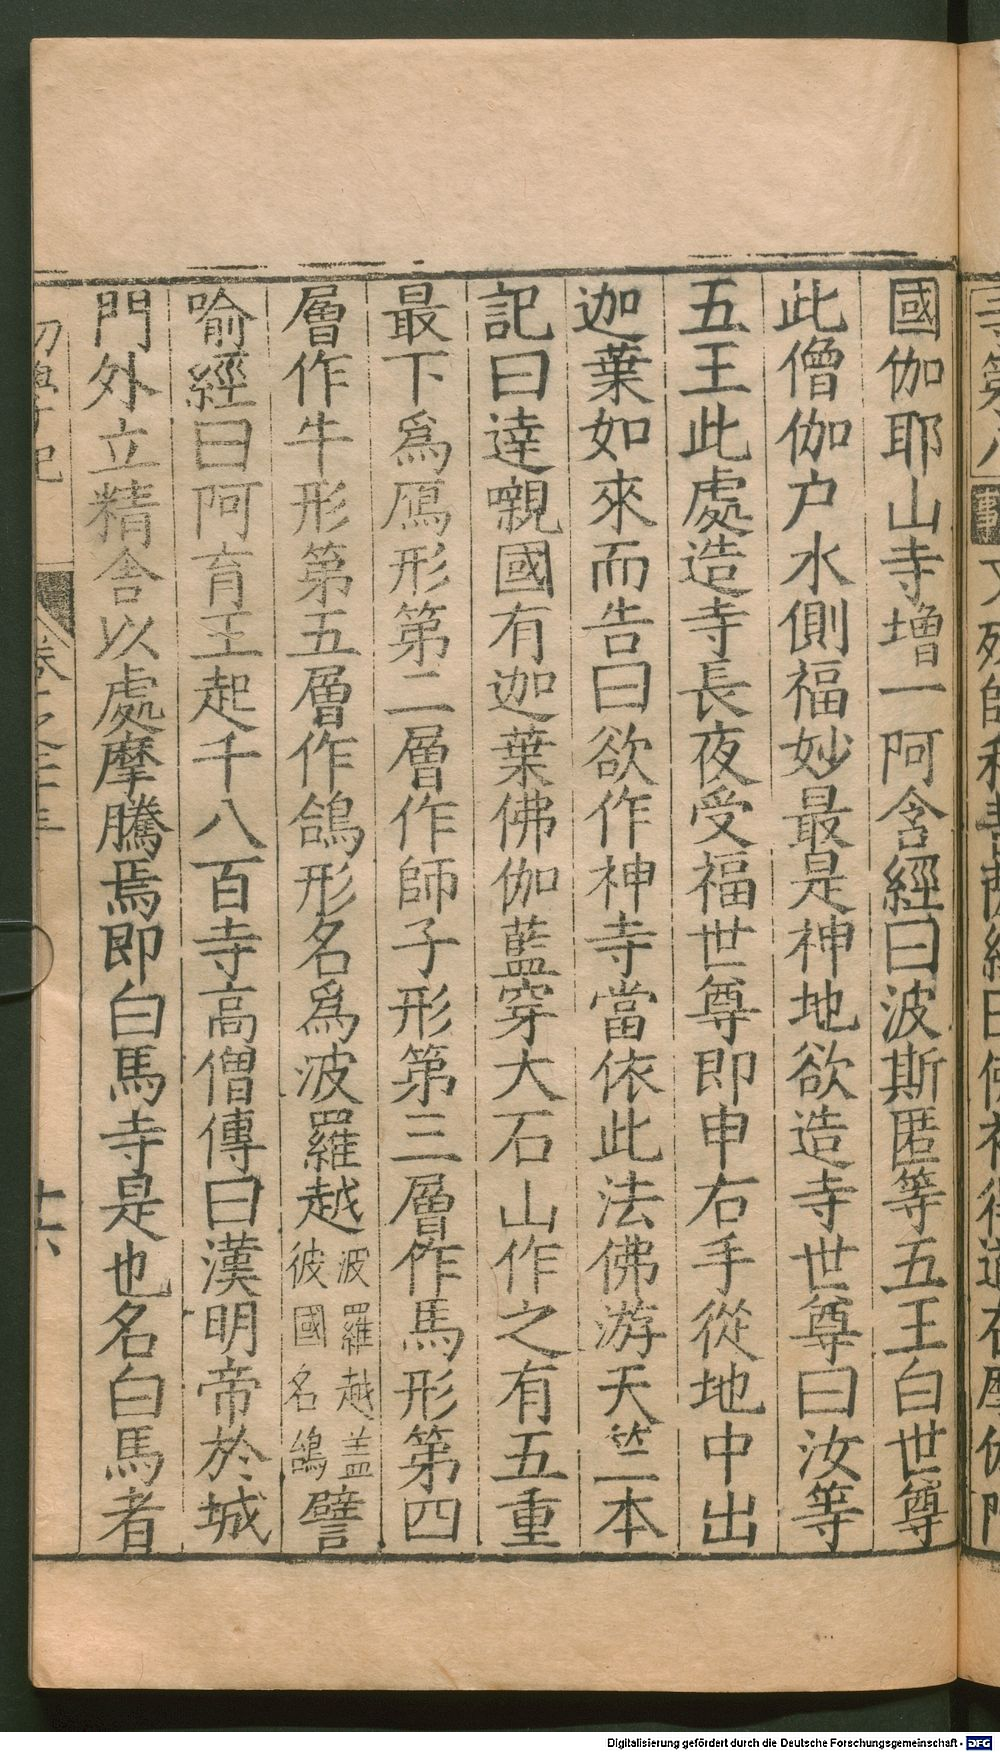 國伽耶山寺增一阿含經曰波斯匿等五王白世尊
此僧伽户水側福妙最是神地欲造寺世尊曰汝等
五王此處造寺長夜受福世尊即申右手從地中出
迦葉如來而告曰欲作神寺當依此法佛游天竺本
記曰達嚫國有迦葉佛伽藍穿大石山作之有五重
最下爲鴈形第二層作師子形第三層作馬形第四
層作牛形第五層作鴿形名爲波羅越波羅越盖彼國名鴿譬
喻經曰阿育王起千八百寺高僧傳曰漢明帝於城
門外立精舍以處摩騰焉即白馬寺是也名白馬者
初學記
卷二之二十三
十六
Digitalisierung gefördert durch die Deutsche Forschungsgemeinschaft - DFG